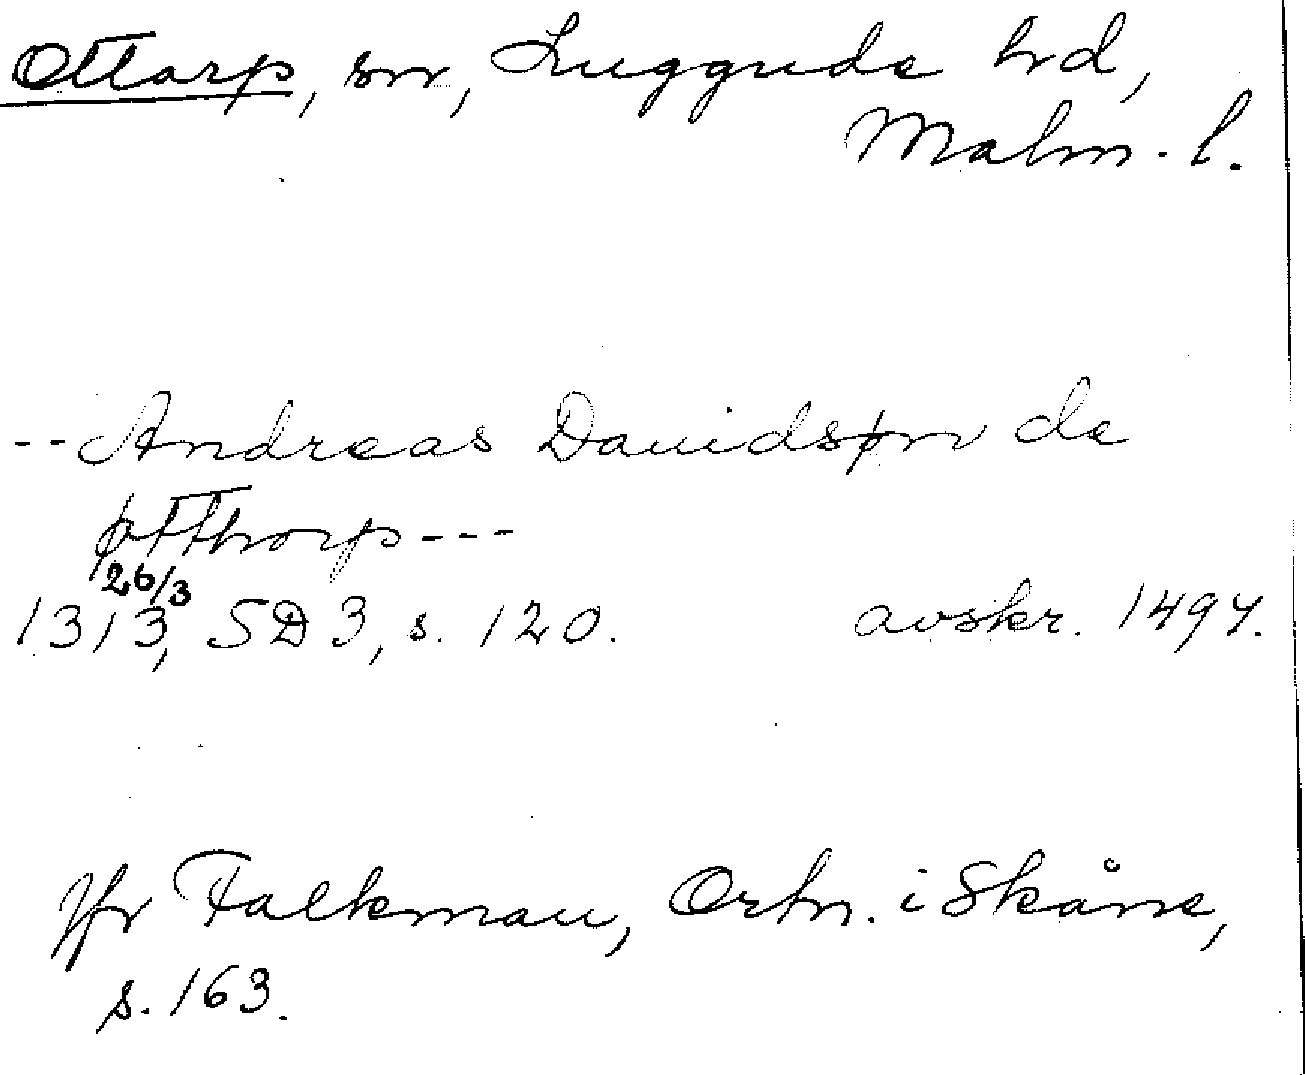 Ottarp, sn, Luggude hd,
Malm. l.
-- Andreas Dauidsøn de
øttthorp ---
1313 26/3, SD 3, s. 120. avskr. 1494.
Jfr Falkman, Ortn. i Skåne,
s. 163.